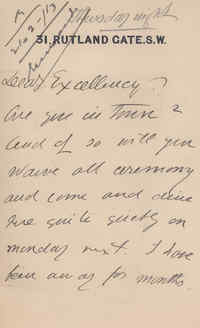 Thursday night
21-2-13
31, RUTLAND GATE. S.W.
Dear Excellency
Are you in Town ?
and if so will you
waive all ceremony
and come and dine
here quite quietly on
monday next. I have
been away for months.